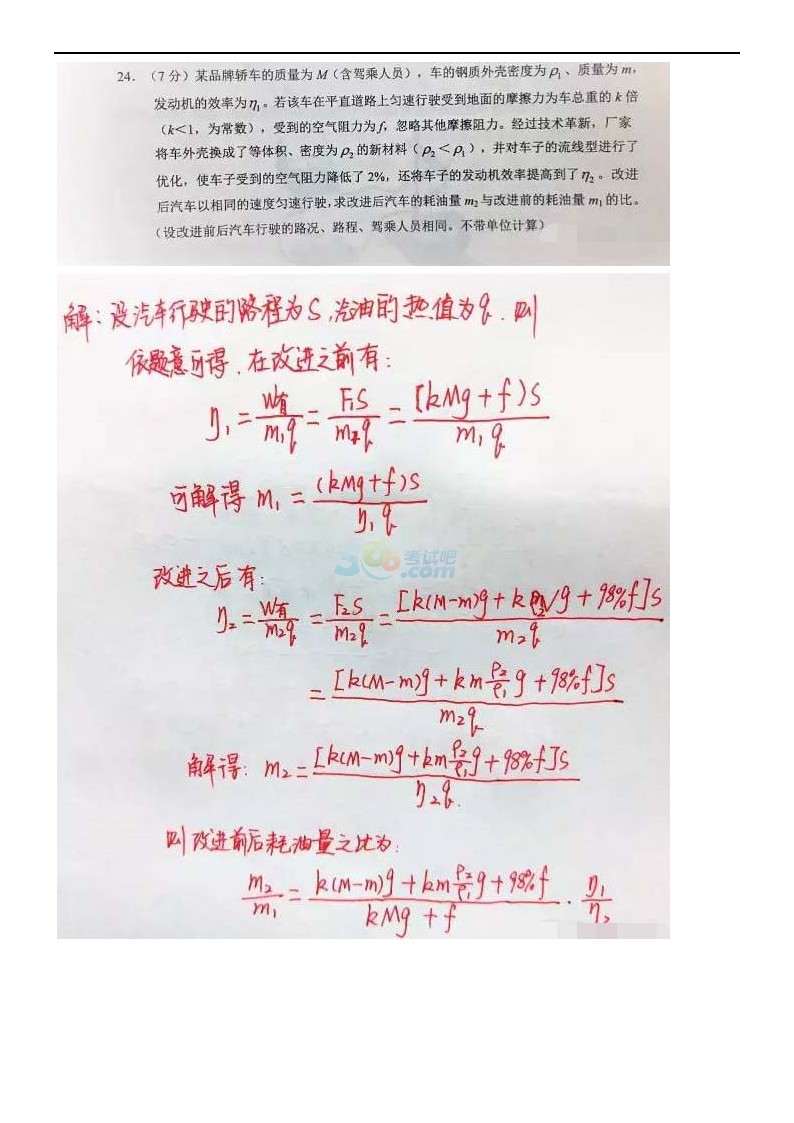 24. (7 分) 某品牌轿车的质量为 M (含驾乘人员) ，车的钢质外壳密度为 ρ₁ 、质量为 m，
发动机的效率为 η₁ 。若该车在平直道路上匀速行驶受到地面的摩擦力为车总重的 k 倍
(k＜1，为常数) ，受到的空气阻力为 f，忽略其他摩擦阻力。经过技术革新，厂家
将车外壳换成了等体积、密度为 ρ₂ 的新材料 (ρ₂＜ρ₁) ，并对车子的流线型进行了
优化，使车子受到的空气阻力降低了 2%，还将车子的发动机效率提高到了 η₂ 。改进
后汽车以相同的速度匀速行驶，求改进后汽车的耗油量 m₂ 与改进前的耗油量 m₁ 的比。
(设改进前后汽车行驶的路况、路程、驾乘人员相同。不带单位计算)
解：设汽车行驶的路程为S，汽油的热值为q．则
依题意可得．在改进之前有：
η₁ = W有/m₁q = F₁S/m₁q = [kMg+f)S/m₁q
可解得 m₁ = (kMg+f)S/η₁q
366考试吧.com
改进之后有：
η₂ = W有/m₂q = F₂S/m₂q = [k(M-m)g+kρ₂Vg+98%f]S/m₂q
= [k(M-m)g+km ρ₂/ρ₁ g+98%f]S/m₂q
解得： m₂ = [k(M-m)g+km ρ₂/ρ₁ g+98%f]S/η₂q.
则改进前后耗油量之比为：
m₂/m₁ = k(M-m)g+km ρ₂/ρ₁ g+98%f/kMg+f · η₁/η₂